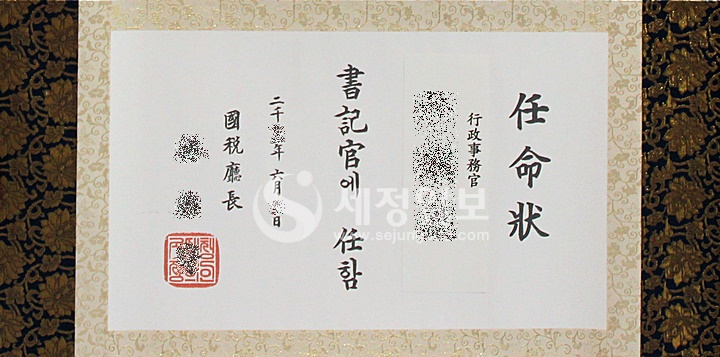 任命狀
行政事務官
書記官에 任함
二千 年 六月 日
國稅廳長
세정일보
www.sejungilbo.com